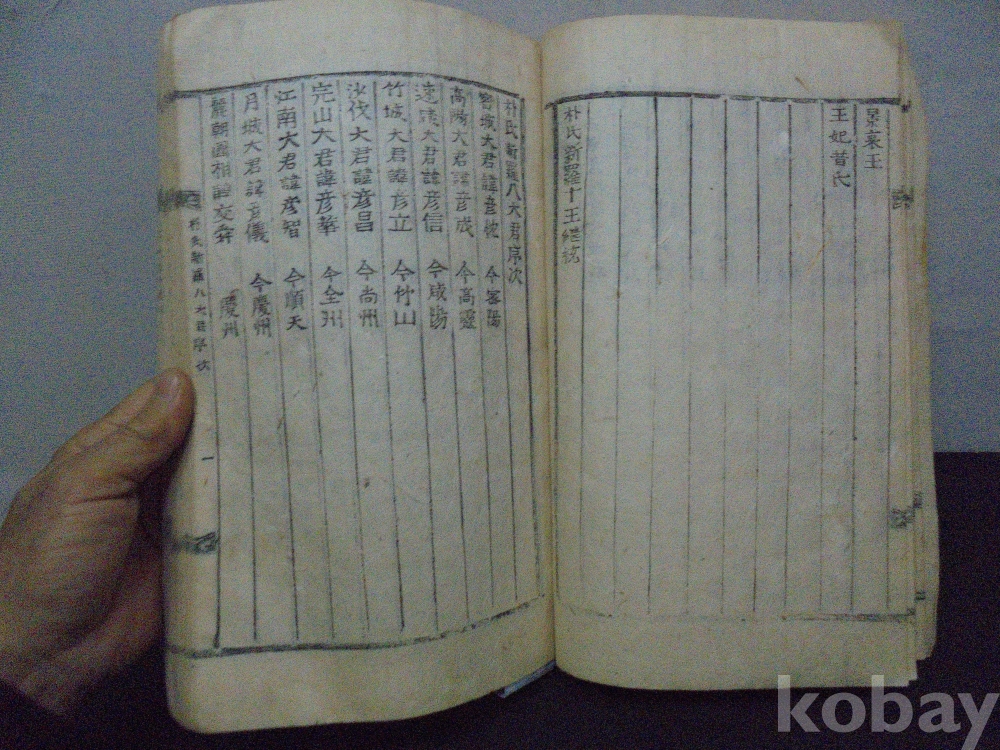 景哀王
王妃昔氏
朴氏新羅十王継統
朴氏新羅八大君序次
密城大君諱彦忱 今密陽
高陽大君諱彦成 今高靈
速咸大君諱彦信 今咸陽
竹城大君諱彦立 今竹山
沙伐大君諱彦昌 今尙州
完山大君諱彦華 今全州
江南大君諱彦智 今順天
月城大君諱彦儀 今慶州
麗朝國相諱交弁 慶州
朴氏新羅八大君序次
一
kobay